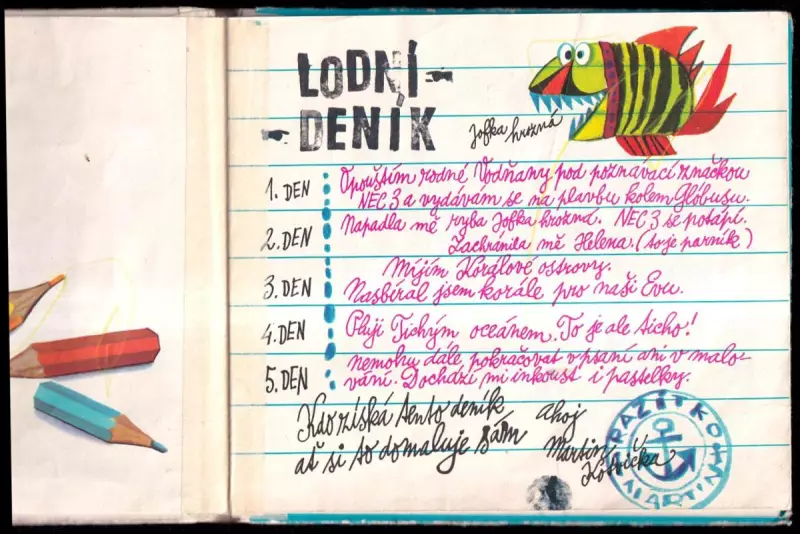 LODNÍ-
-DENÍK
Jofka hrozná
1. DEN
Opouštím rodné Vodňany pod poznávací značkou
NEC 3 a vydávám se na plavbu kolem Glóbusu.
2. DEN
Napadla mě ryba Jofka hrozná. NEC 3 se potápí.
Zachránila mě Helena. (to je parník)
3. DEN
Míjím Korálové ostrovy.
Nasbíral jsem korále pro naši Evu.
4. DEN
Pluji Tichým oceánem. To je ale ticho!
5. DEN
nemohu dále pokračovat v psaní ani v malo-
vání. Dochází mi inkoust i pastelky.
Kdo získá tento deník
ať si to domaluje sám
ahoj
Martin
Kotvička
RAZÍTKO
MARTIN